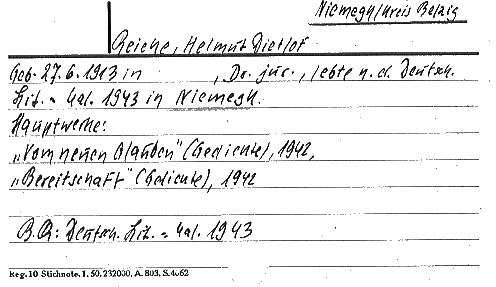 Niemegk/Kreis Belzig
Reiche, Helmut Dietlof
Geb. 27.6.1913 in , Dr. jur., lebte n. d. Deutsch.
Lit.-Kal. 1943 in Niemegk.
Hauptwerke:
„Vom neuen Glauben" (Gedichte), 1942,
„Bereitschaft" (Gedichte), 1942
B.Q.: Deutsch. Lit.-Kal. 1943
Reg. 10 Stichnote. 1. 50. 232000. A. 803. S. 4662